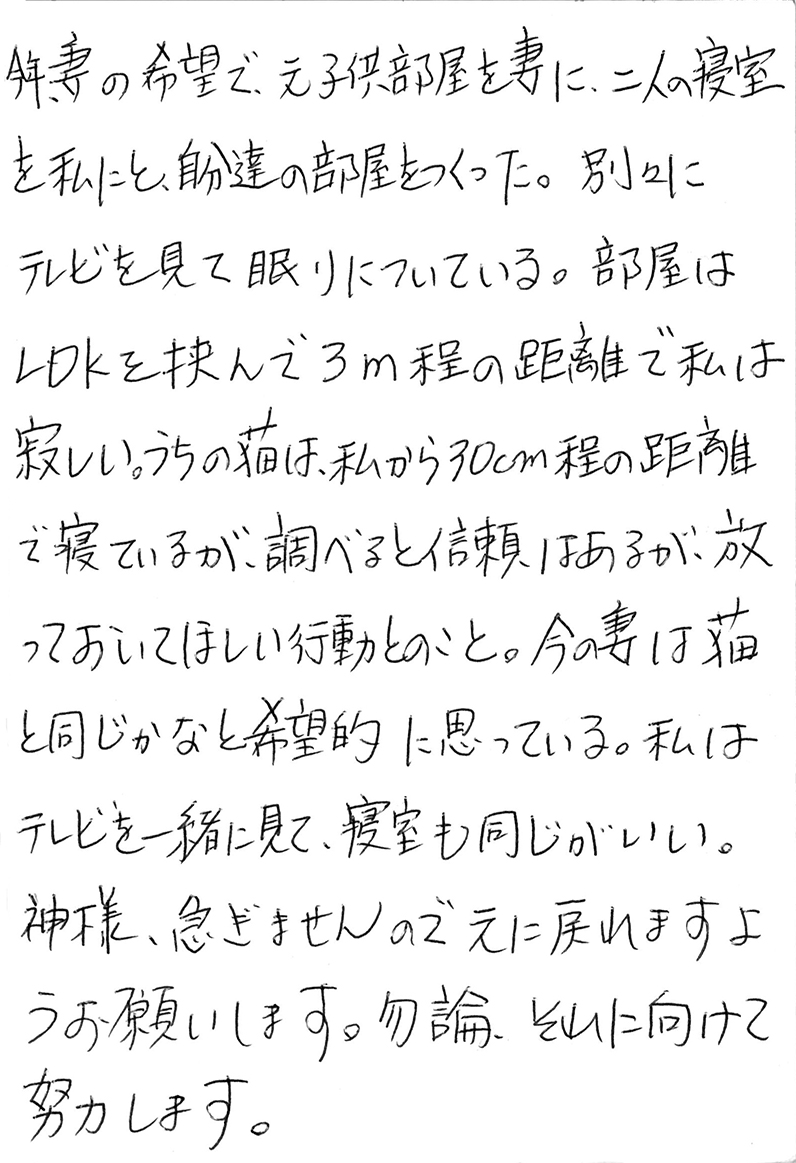 今年、妻の希望で、元子供部屋を妻に、二人の寝室
を私にと、自分達の部屋をつくった。別々に
テレビを見て眠りについている。部屋は
LDKを挟んで3m程の距離で私は
寂しい。うちの猫は、私から30cm程の距離
で寝ているが、調べると信頼はあるが、放
っておいてほしい行動とのこと。今の妻は猫
と同じかなと希望的に思っている。私は
テレビを一緒に見て、寝室も同じがいい。
神様、急ぎませんので元に戻れますよ
うお願いします。勿論、それに向けて
努力します。